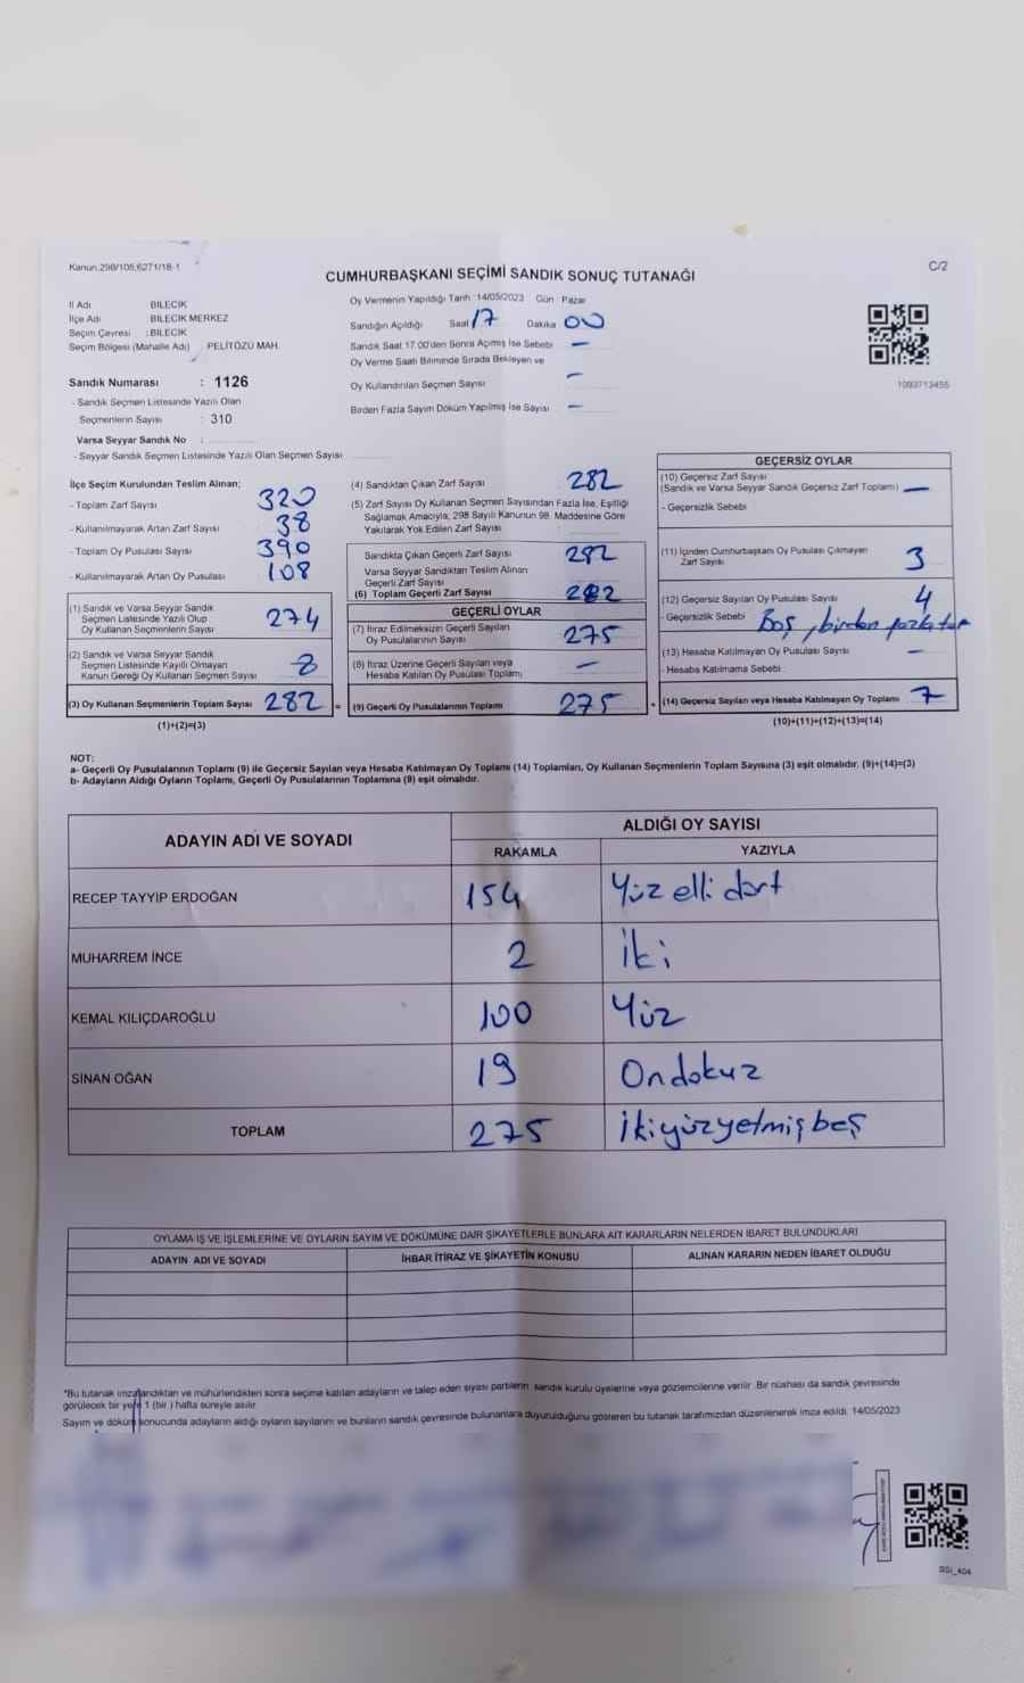 Kanun:298/105,6271/18-1
C/2
CUMHURBAŞKANI SEÇİMİ SANDIK SONUÇ TUTANAĞI
İl Adı BİLECİK
İlçe Adı BİLECİK MERKEZ
Seçim Çevresi :BİLECİK
Seçim Bölgesi (Mahalle Adı) PELİTÖZÜ MAH.
Sandık Numarası : 1126
- Sandık Seçmen Listesinde Yazılı Olan
Seçmenlerin Sayısı : 310
Varsa Seyyar Sandık No :
- Seyyar Sandık Seçmen Listesinde Yazılı Olan Seçmen Sayısı
Oy Vermenin Yapıldığı Tarih :14/05/2023 Gün Pazar
Sandığın Açıldığı Saat 17 Dakika 00
Sandık Saat 17.00'den Sonra Açılmış İse Sebebi —
Oy Verme Saati Bitiminde Sırada Bekleyen ve
Oy Kullandırılan Seçmen Sayısı —
Birden Fazla Sayım Döküm Yapılmış İse Sayısı —
1093713455
İlçe Seçim Kurulundan Teslim Alınan;
- Toplam Zarf Sayısı 320
- Kullanılmayarak Artan Zarf Sayısı 38
- Toplam Oy Pusulası Sayısı 390
- Kullanılmayarak Artan Oy Pusulası 108
(1) Sandık ve Varsa Seyyar Sandık
Seçmen Listesinde Yazılı Olup
Oy Kullanan Seçmenlerin Sayısı 274
(2) Sandık ve Varsa Seyyar Sandık
Seçmen Listesinde Kayıtlı Olmayan
Kanun Gereği Oy Kullanan Seçmen Sayısı 8
(3) Oy Kullanan Seçmenlerin Toplam Sayısı 282 =
(1)+(2)=(3)
(4) Sandıktan Çıkan Zarf Sayısı 282
(5) Zarf Sayısı Oy Kullanan Seçmen Sayısından Fazla İse, Eşitliği
Sağlamak Amacıyla, 298 Sayılı Kanunun 98. Maddesine Göre
Yakılarak Yok Edilen Zarf Sayısı
Sandıkta Çıkan Geçerli Zarf Sayısı 282
Varsa Seyyar Sandıktan Teslim Alınan
Geçerli Zarf Sayısı
(6) Toplam Geçerli Zarf Sayısı 282
GEÇERLİ OYLAR
(7) İtiraz Edilmeksizin Geçerli Sayılan
Oy Pusulalarının Sayısı 275
(8) İtiraz Üzerine Geçerli Sayılan veya
Hesaba Katılan Oy Pusulası Toplamı —
(9) Geçerli Oy Pusulalarının Toplamı 275 +
GEÇERSİZ OYLAR
(10) Geçersiz Zarf Sayısı
(Sandık ve Varsa Seyyar Sandık Geçersiz Zarf Toplamı) —
- Geçersizlik Sebebi
(11) İçinden Cumhurbaşkanı Oy Pusulası Çıkmayan
Zarf Sayısı 3
(12) Geçersiz Sayılan Oy Pusulası Sayısı 4
- Geçersizlik Sebebi Boş, birden fazla
(13) Hesaba Katılmayan Oy Pusulası Sayısı —
- Hesaba Katılmama Sebebi
(14) Geçersiz Sayılan veya Hesaba Katılmayan Oy Toplamı 7
(10)+(11)+(12)+(13)=(14)
NOT:
a- Geçerli Oy Pusulalarının Toplamı (9) ile Geçersiz Sayılan veya Hesaba Katılmayan Oy Toplamı (14) Toplamları, Oy Kullanan Seçmenlerin Toplam Sayısına (3) eşit olmalıdır. (9)+(14)=(3)
b- Adayların Aldığı Oyların Toplamı, Geçerli Oy Pusulalarının Toplamına (9) eşit olmalıdır.
ADAYIN ADI VE SOYADI
ALDIĞI OY SAYISI
RAKAMLA YAZIYLA
RECEP TAYYİP ERDOĞAN 154 Yüz elli dört
MUHARREM İNCE 2 iki
KEMAL KILIÇDAROĞLU 100 Yüz
SİNAN OĞAN 19 Ondokuz
TOPLAM 275 ikiyüzyetmişbeş
OYLAMA İŞ VE İŞLEMLERİNE VE OYLARIN SAYIM VE DÖKÜMÜNE DAİR ŞİKAYETLERLE BUNLARA AİT KARARLARIN NELERDEN İBARET BULUNDUKLARI
ADAYIN ADI VE SOYADI İHBAR İTİRAZ VE ŞİKAYETİN KONUSU ALINAN KARARIN NEDEN İBARET OLDUĞU
*Bu tutanak imzalandıktan ve mühürlendikten sonra seçime katılan adayların ve talep eden siyasi partilerin sandık kurulu üyelerine veya gözlemcilerine verilir. Bir nüshası da sandık çevresinde
görülecek bir yere 1 (bir ) hafta süreyle asılır.
Sayım ve döküm sonucunda adayların aldığı oyların sayılarını ve bunların sandık çevresinde bulunanlara duyurulduğunu gösteren bu tutanak tarafımızdan düzenlenerek imza edildi. 14/05/2023